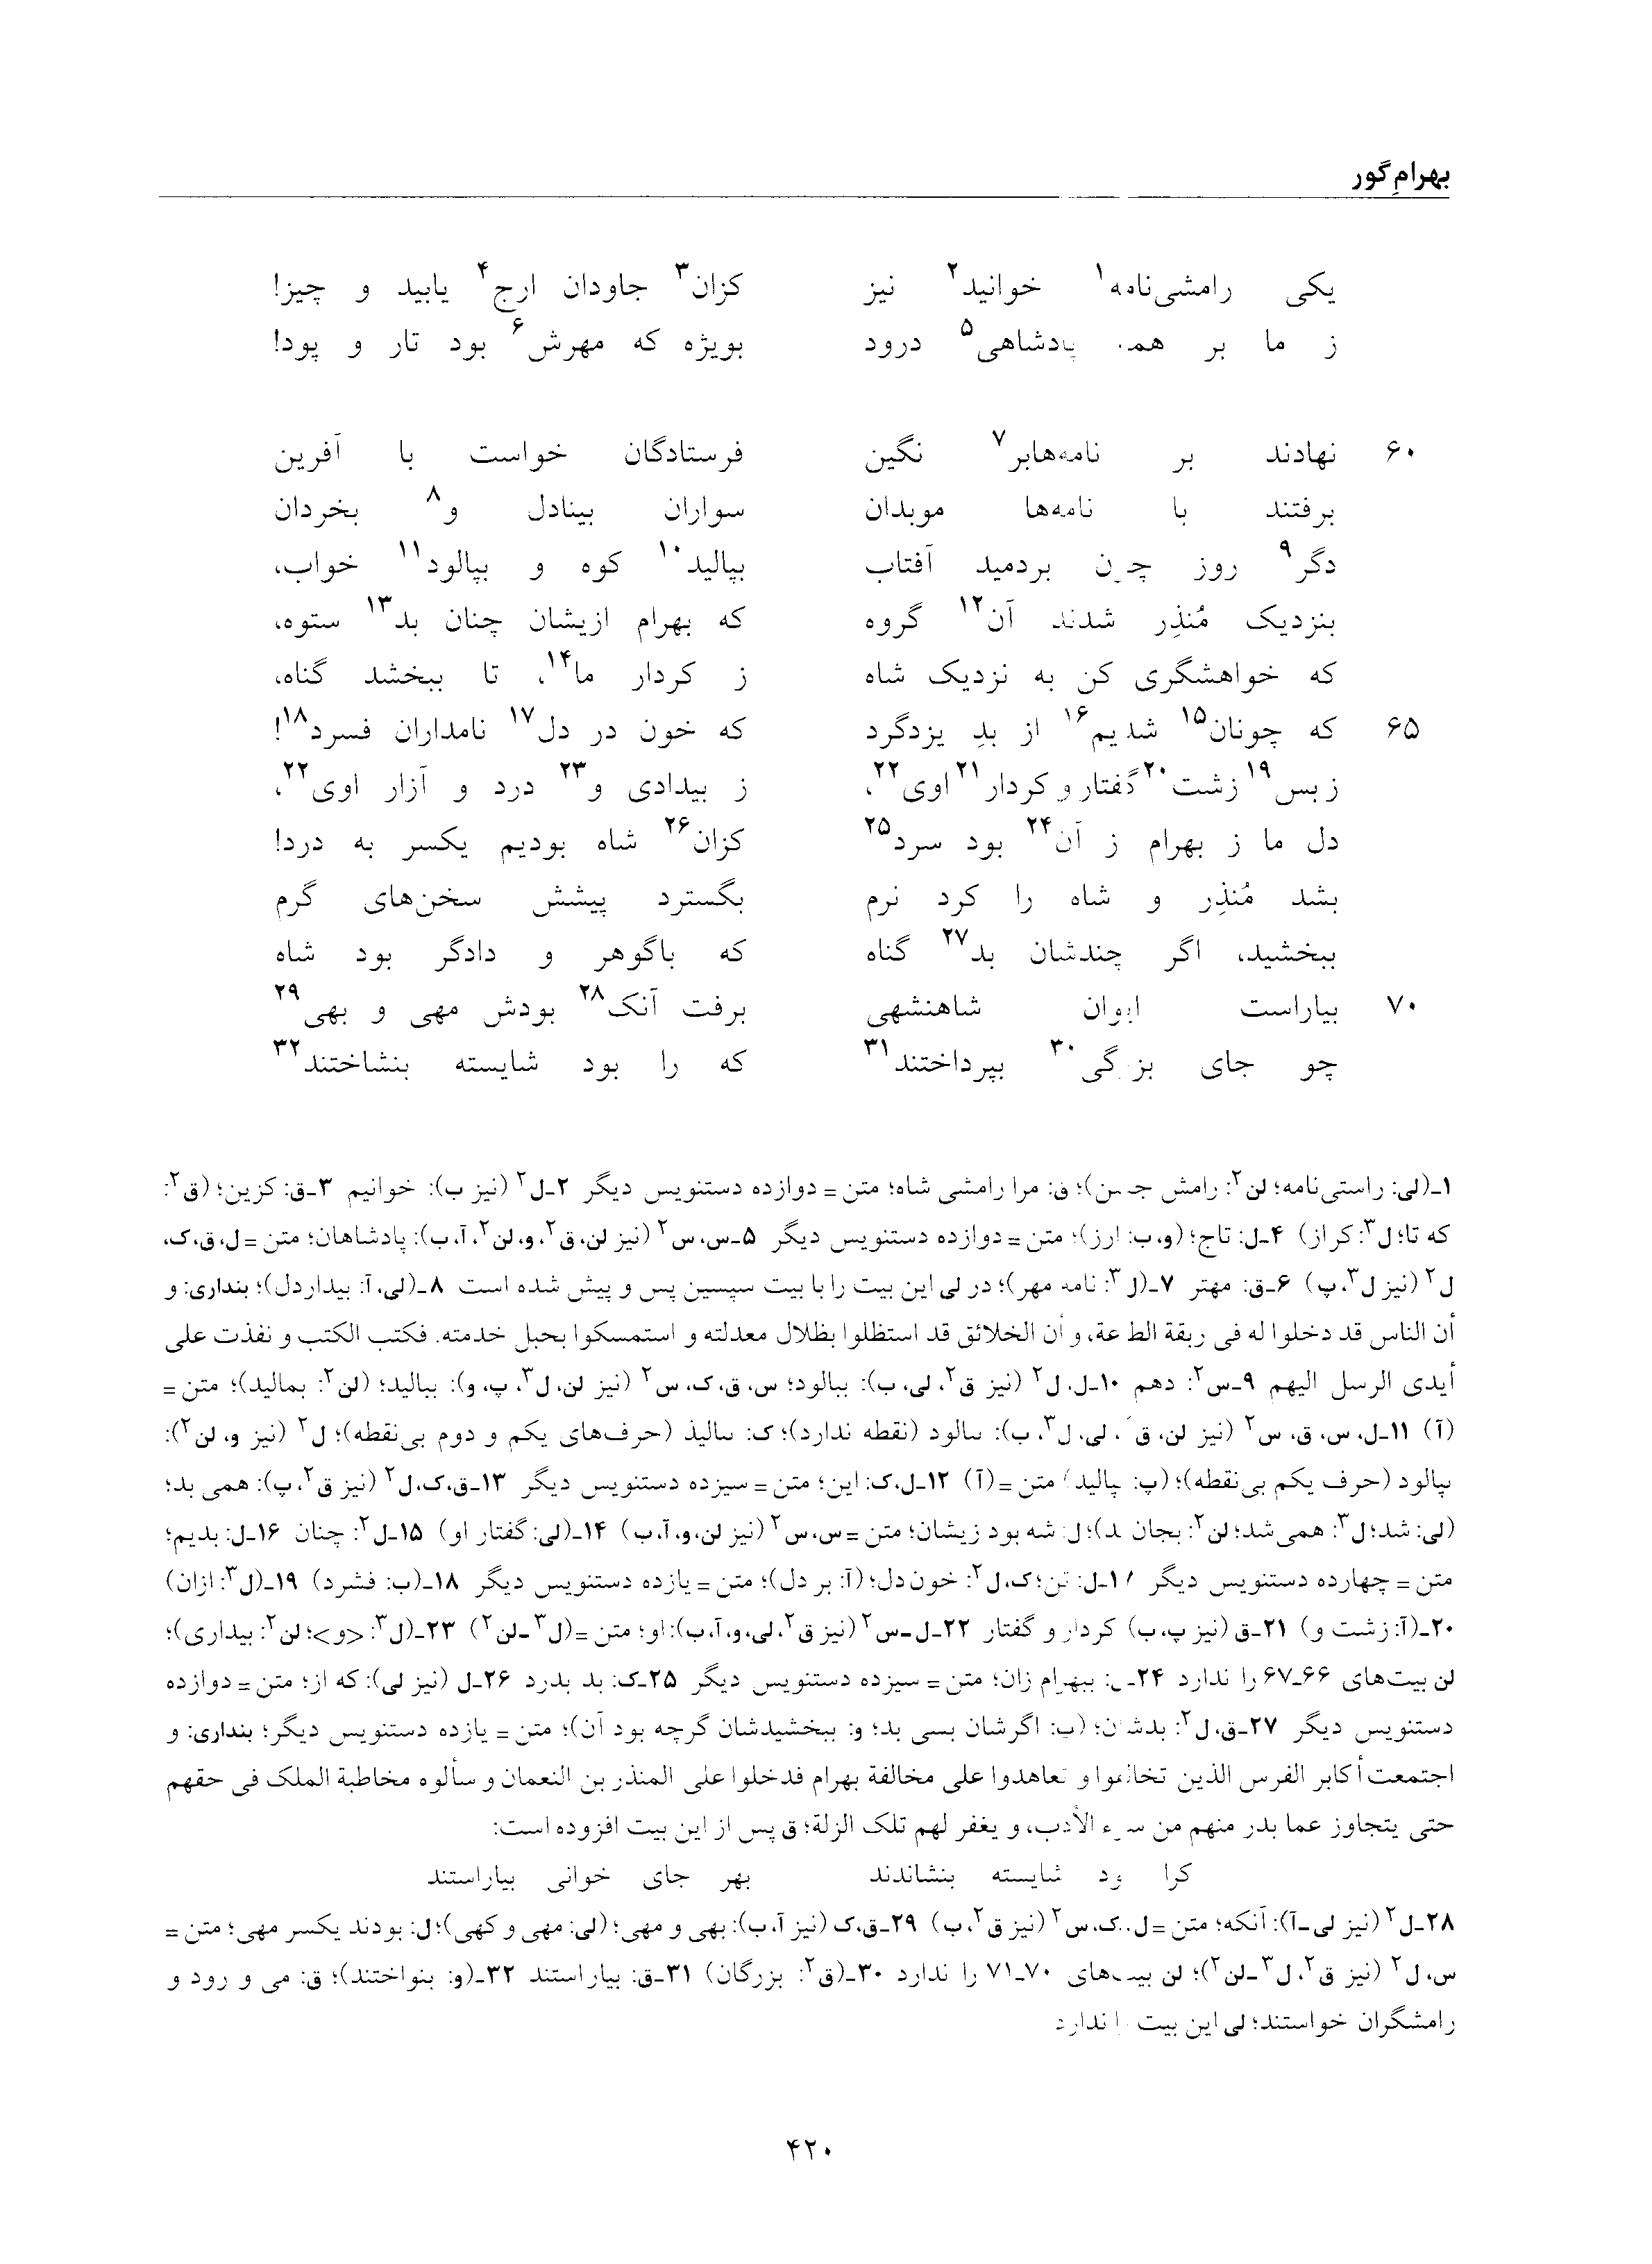 بهرامِ گور
یکی رامشی‌نامه۱ خوانید۲ نیز کزان۳ جاودان ارج۴ یابید و چیز!
ز ما بر همه پادشاهی۵ درود بویژه که مهرش۶ بود تار و پود!
۶۰ نهادند بر نامه‌هابر۷ نگین فرستادگان خواست با آفرین
برفتند با نامه‌ها موبدان سواران بینادل و۸ بخردان
دگر۹ روز چون بردمید آفتاب بپالید۱۰ کوه و بپالود۱۱ خواب،
بنزدیک مُنذِر شدند آن۱۲ گروه که بهرام ازیشان چنان بد۱۳ ستوه،
که خواهشگری کن به نزدیک شاه ز کردار ما۱۴، تا ببخشد گناه،
۶۵ که چونان۱۵ شدیم۱۶ از بدِ یزدگرد که خون در دل۱۷ نامداران فسرد۱۸!
ز بس۱۹ زشت۲۰ گفتار و کردار۲۱ اوی۲۲، ز بیدادی و۲۳ درد و آزار اوی۲۲،
دل ما ز بهرام ز آن۲۴ بود سرد۲۵ کزان۲۶ شاه بودیم یکسر به درد!
بشد مُنذِر و شاه را کرد نرم بگسترد پیشش سخن‌های گرم
ببخشید، اگر چندشان بد۲۷ گناه که باگوهر و دادگر بود شاه
۷۰ بیاراست ایوان شاهنشهی برفت آنک۲۸ بودش مهی و بهی۲۹
چو جای بزرگی۳۰ بپرداختند۳۱ که را بود شایسته بنشاختند۳۲
۱ـ(لی: راستی‌نامه؛ لن۲: رامش جـ ـن)؛ ق: مرا رامشی شاه؛ متن = دوازده دستنویس دیگر ۲ـل۲ (نیز ب): خوانیم ۳ـق: کزین؛ (ق۲:
که تا؛ ل۳: کراز) ۴ـل: تاج؛ (و، ب: ارز)؛ متن = دوازده دستنویس دیگر ۵ـس، س۲ (نیز لن، ق۲، و، لن۲، آ، ب): پادشاهان؛ متن = ل، ق، ک،
ل۲ (نیز ل۳، پ) ۶ـق: مهتر ۷ـ(ل۳: نامه مهر)؛ در لی این بیت را با بیت سپسین پس و پیش شده است ۸ـ(لی، آ: بیداردل)؛ بنداری: و
أن الناس قد دخلوا له فی ربقة الطاعة، و أن الخلائق قد استظلوا بظلال معدلته و استمسکوا بحبل خدمته. فکتب الکتب و نفذت علی
أیدی الرسل الیهم ۹ـس۲: دهم ۱۰ـل، ل۲ (نیز ق۲، لی، ب): ببالود؛ س، ق، ک، س۲ (نیز لن، ل۳، پ، و): ببالید؛ (لن۲: بمالید)؛ متن =
(آ) ۱۱ـل، س، ق، س۲ (نیز لن، ق، لی، ل۳، ب): ٮٮالود (نقطه ندارد)؛ ک: ٮٮالیذ (حرف‌های یکم و دوم بی‌نقطه)؛ ل۲ (نیز و، لن۲):
ٮپالود (حرف یکم بی‌نقطه)؛ (پ: پالید) متن = (آ) ۱۲ـل، ک: این؛ متن = سیزده دستنویس دیگر ۱۳ـق، ک، ل۲ (نیز ق۲، پ): همی بد؛
(لی: شد؛ ل۳: همی شد؛ لن۲: بجان بد)؛ ل: شه بود زیشان؛ متن = س، س۲ (نیز لن، و، آ، ب) ۱۴ـ(لی: گفتار او) ۱۵ـل۲: چنان ۱۶ـل: بدیم؛
متن = چهارده دستنویس دیگر ۱۷ـل: تن؛ ک، ل۲: خون دل؛ (آ: بر دل)؛ متن = یازده دستنویس دیگر ۱۸ـ(ب: فشرد) ۱۹ـ(ل۳: ازان)
۲۰ـ(آ: زشت و) ۲۱ـق (نیز پ، ب) کردار و گفتار ۲۲ـل ـ س۲ (نیز ق۲، لی، و، آ، ب): او؛ متن = (ل۳ ـ لن۲) ۲۳ـ(ل۳: <و>؛ لن۲: بیداری)؛
لن بیت‌های ۶۶ـ۶۷ را ندارد ۲۴ـ : ببهرام زان؛ متن = سیزده دستنویس دیگر ۲۵ـک: بد بدرد ۲۶ـل (نیز لی): که از؛ متن = دوازده
دستنویس دیگر ۲۷ـق، ل۲: بدشان؛ (ب: اگرشان بسی بد؛ و: ببخشیدشان گرچه بود آن)؛ متن = یازده دستنویس دیگر؛ بنداری: و
اجتمعت أکابر الفرس الذین تخالفوا و تعاهدوا علی مخالفة بهرام فدخلوا علی المنذر بن النعمان و سألوه مخاطبة الملک فی حقهم
حتی یتجاوز عما بدر منهم من سوء الأدب، و یغفر لهم تلک الزلة؛ ق پس از این بیت افزوده است:
کرا بود شایسته بنشاندند بهر جای خوانی بیاراستند
۲۸ـل۲ (نیز لی ـ آ): آنکه؛ متن = ل، ک، س۲ (نیز ق۲، ب) ۲۹ـق، ک (نیز آ، ب): بهی و مهی؛ (لی: مهی و کهی)؛ ل: بودند یکسر مهی؛ متن =
س، ل۲ (نیز ق۲، ل۳ ـ لن۲)؛ لن بیت‌های ۷۰ـ۷۱ را ندارد ۳۰ـ(ق۲: بزرگان) ۳۱ـق: بیاراستند ۳۲ـ(و: بنواختند)؛ ق: می و رود و
رامشگران خواستند؛ لی این بیت را ندارد
۴۲۰